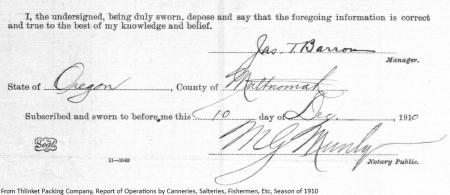 I, the undersigned, being duly sworn, depose and say that the foregoing information is correct
and true to the best of my knowledge and belief.
Jas. T. Barron
Manager.
State of Oregon, County of Multnomah
Subscribed and sworn to before me this 10 day of Dec. 1910
M G Munly
Seal
11—3543
Notary Public.
From Thlinket Packing Company, Report of Operations by Canneries, Salteries, Fishermen, Etc, Season of 1910